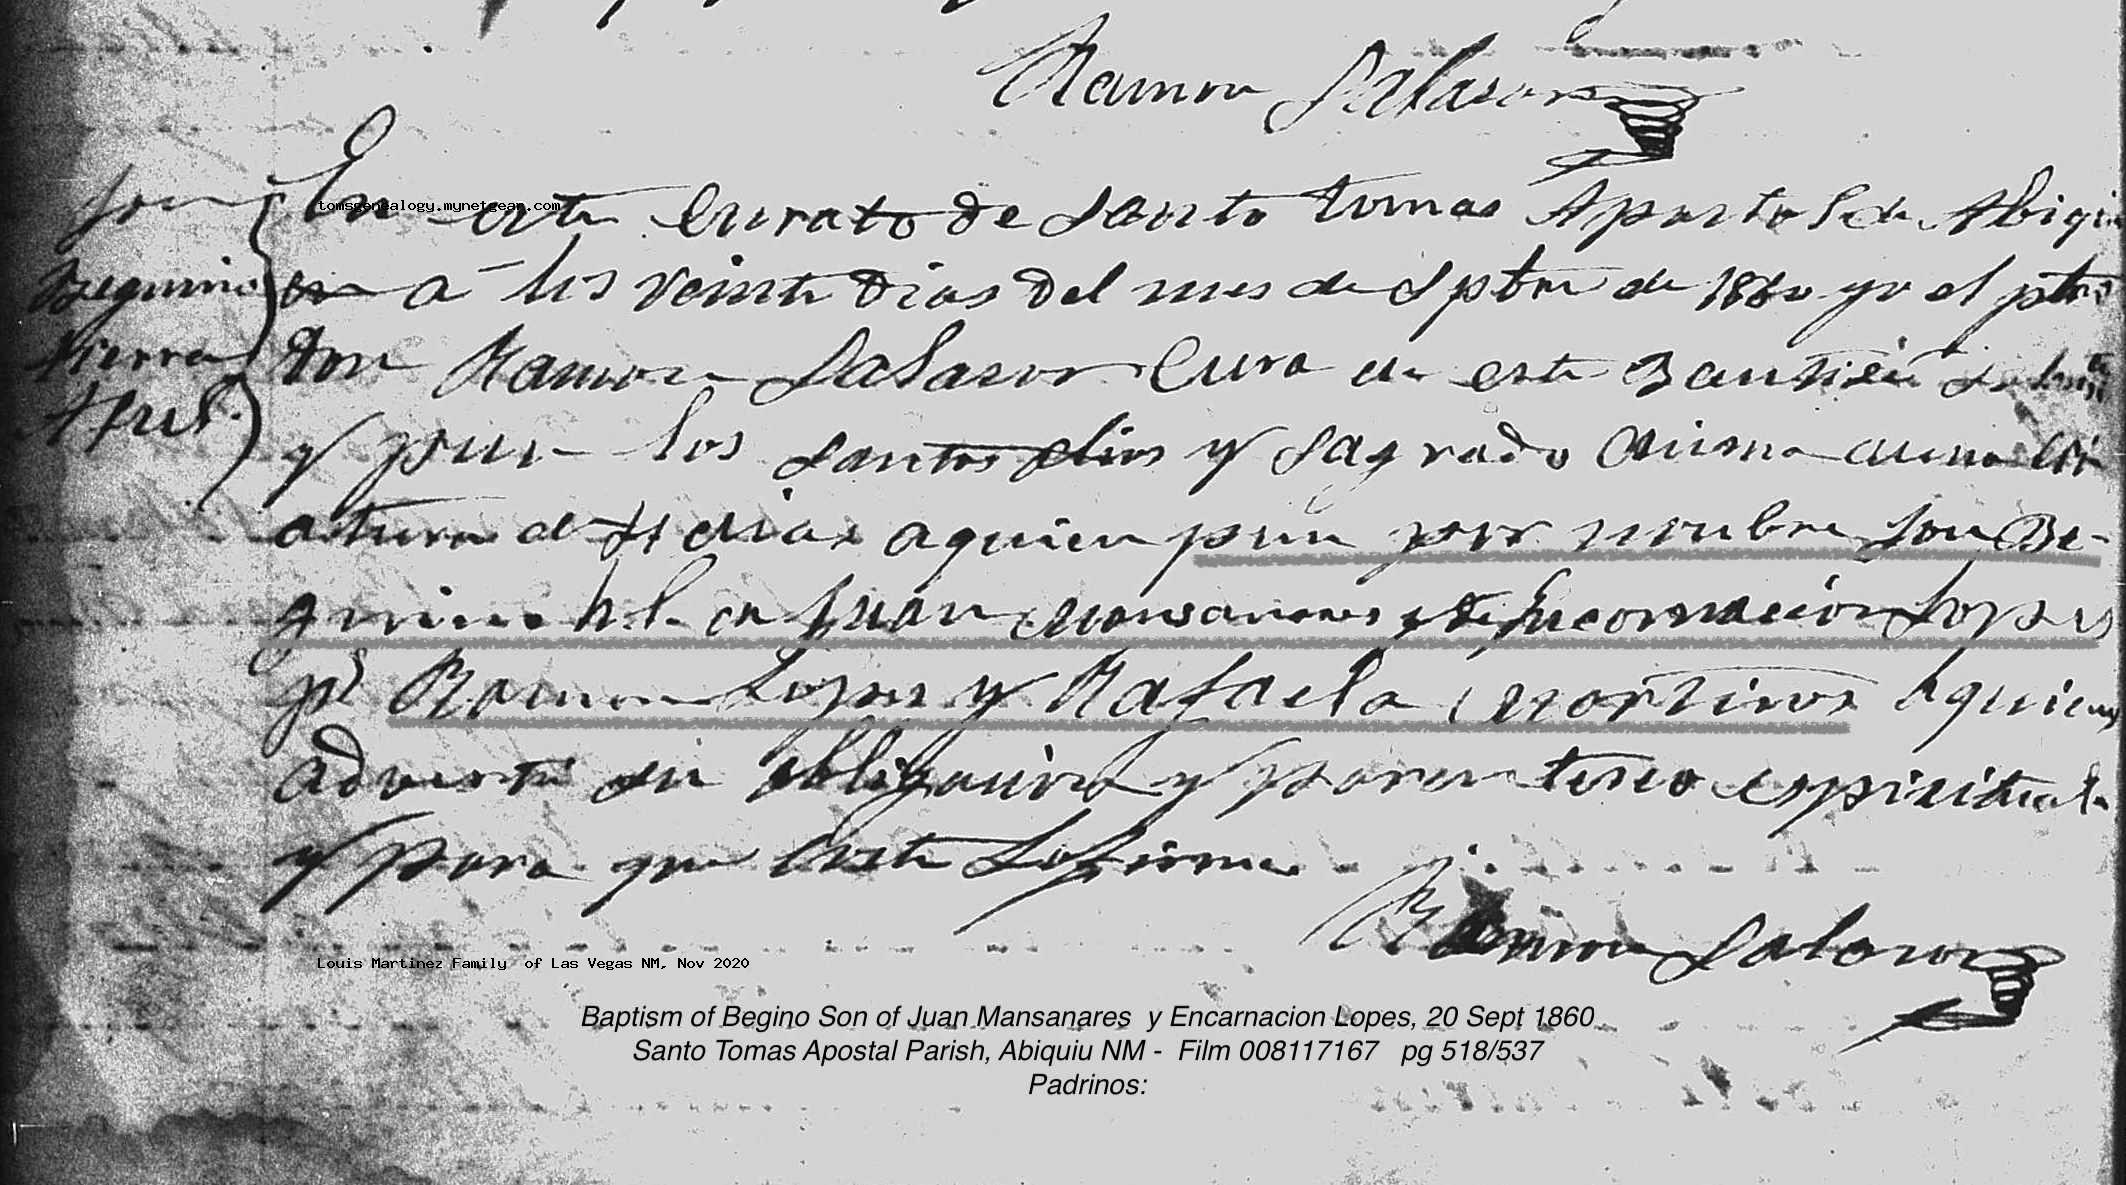 Ramon Salasar
Jose
Beguino
tierra
Asul.
tomsgenealogy.mynetgear.com
En este Curato de Santo tomas Apostol de Abiqui
a los veinte dias del mes de Sptre de 1860 yo el pbro
Don Ramon Salasar Cura de este Bautisé
y puse los Santos olios y Sagrado Crisma a una Cri
atura de dias a quien puse por nombre Jose Be-
guino h. l. de Juan Mansanares y de Encarnacion Lopes
ps Ramon Lopes y Rafaela Martines A quienes
adverti su obligacion y parentesco espiritual
y para que Coste Lo firme
Ramon Salasar
Louis Martinez Family of Las Vegas NM, Nov 2020
Baptism of Begino Son of Juan Mansanares y Encarnacion Lopes, 20 Sept 1860
Santo Tomas Apostal Parish, Abiquiu NM - Film 008117167 pg 518/537
Padrinos: